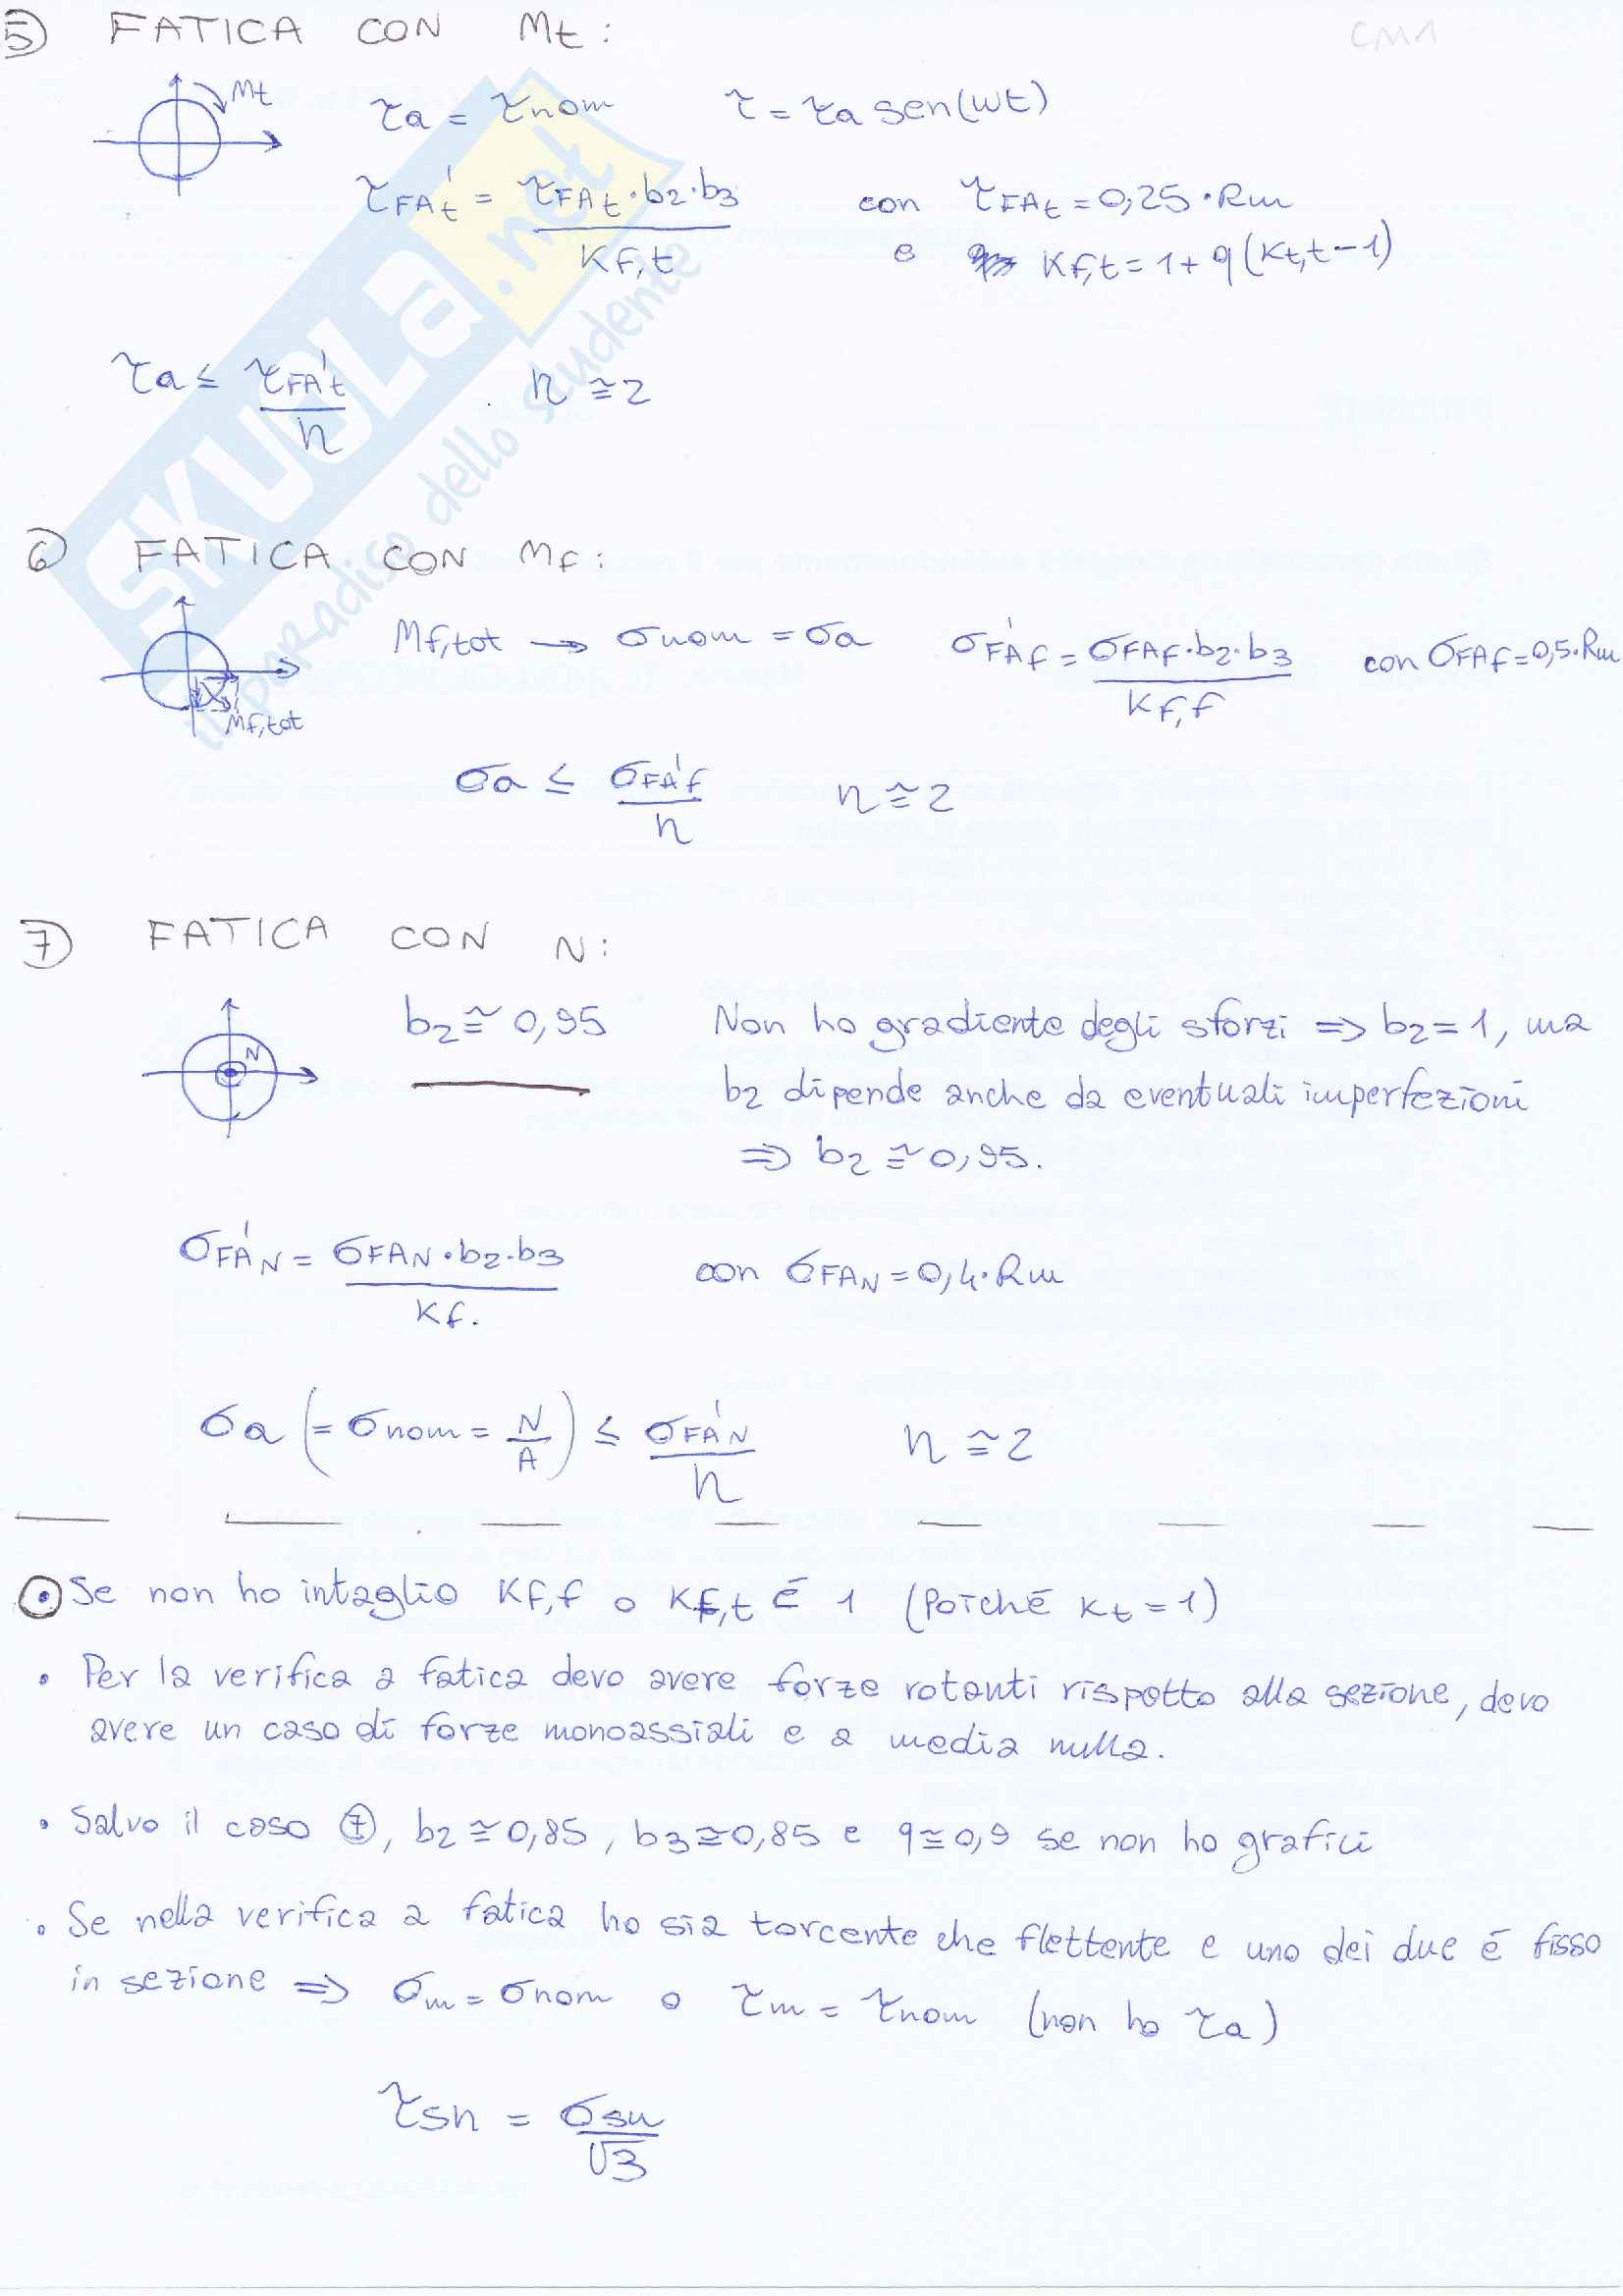 5) FATICA CON Mt:
CM1
Mt
τa = τnom   τ = τa sen(ωt)
τFA't = τFAt·b2·b3 / Kf,t   con τFAt = 0,25·Rm
e Kf,t = 1 + q(Kt,t - 1)
τa ≤ τFA't / n   n ≅ 2
SKUOLA.net
il paradiso dello studente
6) FATICA CON Mf:
Mf,tot → σnom = σa   σFA'f = σFAf·b2·b3 / Kf,f   con σFAf = 0,5·Rm
Mf,tot
σa ≤ σFA'f / n   n ≅ 2
7) FATICA CON N:
N
b2 ≅ 0,95   Non ho gradiente degli sforzi ⇒ b2 = 1, ma
b2 dipende anche da eventuali imperfezioni
⇒ b2 ≅ 0,95.
σFA'N = σFAN·b2·b3 / Kf.   con σFAN = 0,4·Rm
σa (= σnom = N/A) ≤ σFA'N / n   n ≅ 2
⊙ Se non ho intaglio Kf,f o Kf,t é 1 (poiché Kt = 1)
• Per la verifica a fatica devo avere forze rotanti rispetto alla sezione, devo
avere un caso di forze monoassiali e a media nulla.
• Salvo il caso 7, b2 ≅ 0,85, b3 ≅ 0,85 e q ≅ 0,9 se non ho grafici
• Se nella verifica a fatica ho sia torcente che flettente e uno dei due é fisso
in sezione ⇒ σm = σnom o τm = τnom (non ho τa)
τsn = σsn / √3